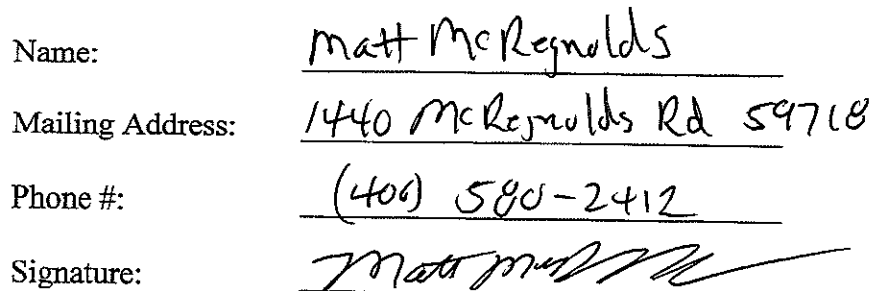 Name: Matt McReynolds
Mailing Address: 1440 McReynolds Rd 59718
Phone #: (406) 580-2412
Signature: Matt